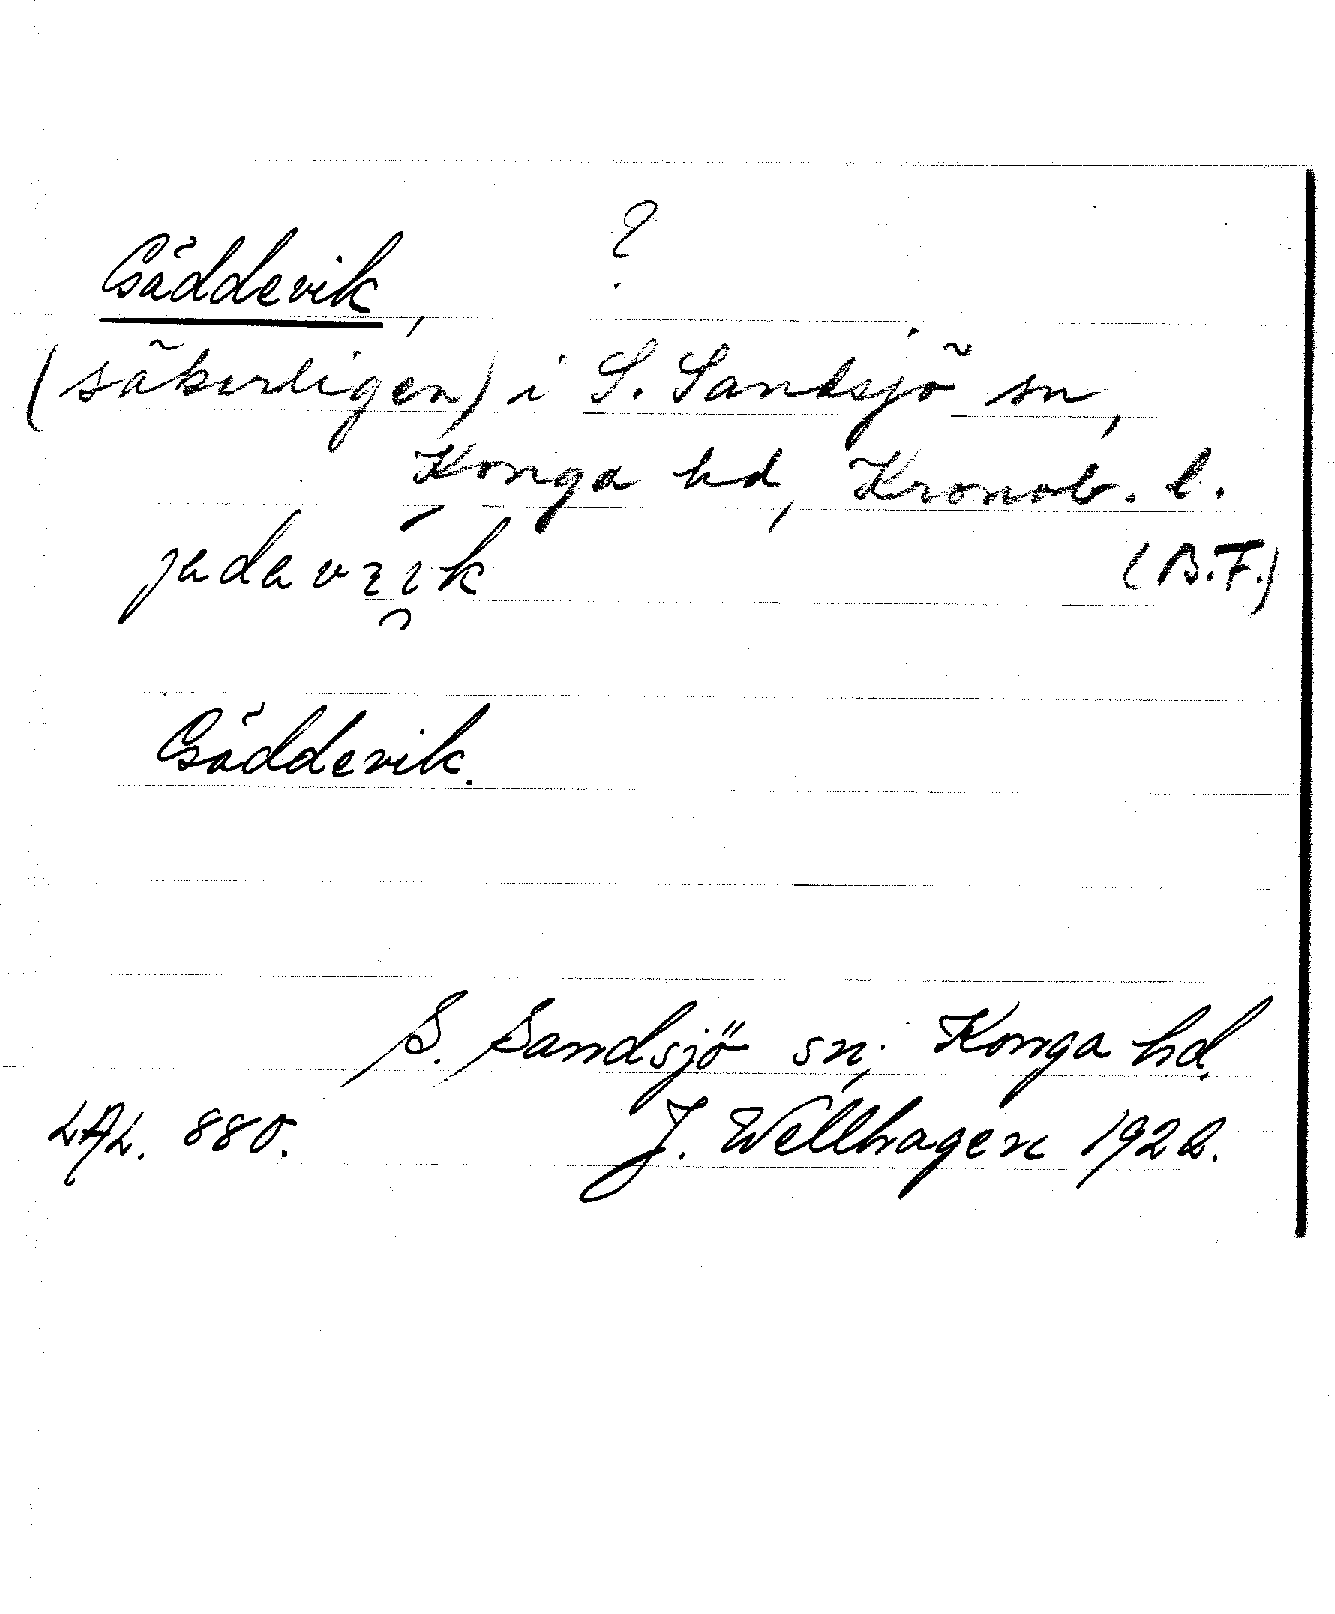 Gäddevik, ?
(säkerligen) i S. Sandsjö sn,
Konga hd, Kronob. l.
(B.F.)
Gäddevik.
S. Sandsjö sn; Konga hd.
LAL. 880. J. Wellhagen 1922.